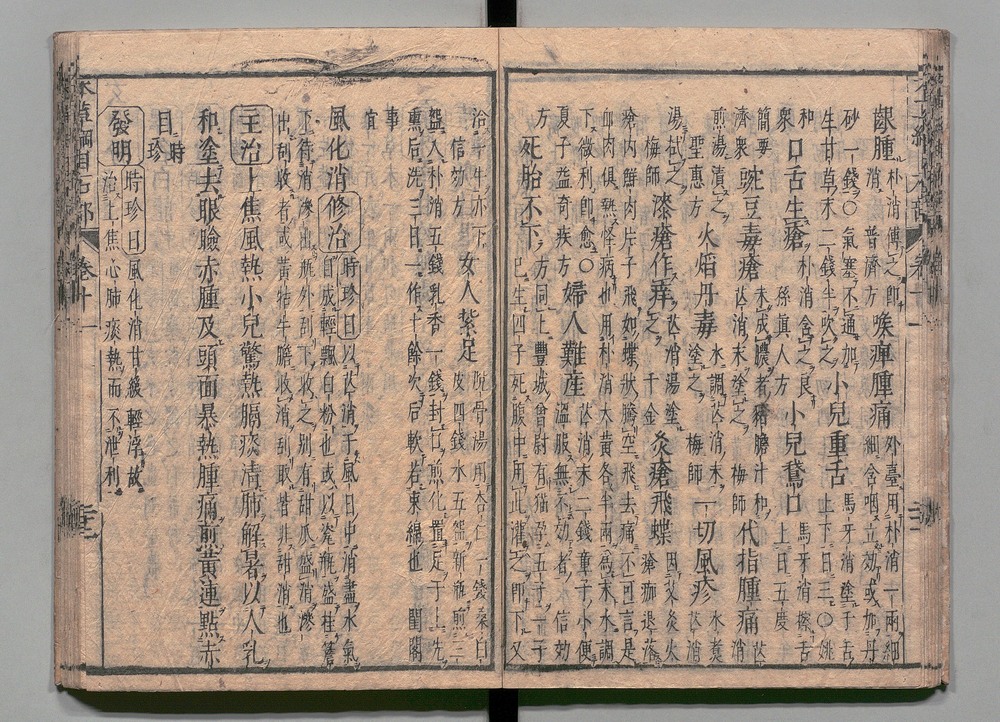 齦腫朴消傅之即消普濟方喉痺腫痛外臺用朴消一兩細細含咽立效或加丹
砂一錢〇氣塞不通加生甘草末二錢半吹之小兒重舌馬牙消塗于舌上下日三〇姚
和衆口舌生瘡朴消含之良孫真人方小兒鵞口馬牙消擦舌上日五度
簡要濟衆豌豆毒瘡未成膿者猪膽汁和芒消末塗之梅師代指腫痛芒消
煎湯漬之聖惠方火焰丹毒水調芒消末塗之梅師一切風疹水煑芒消
湯拭之梅師漆瘡作痒芒消湯塗之千金灸瘡飛蝶因艾灸火瘡痂退落
瘡內鮮肉片子飛如蝶狀騰空飛去痛不可言是血肉俱熱怪病也用朴消大黃各半兩爲末水調
下微利即愈〇夏子益奇疾方婦人難産芒消末二錢童子小便溫服無不効者信効
方死胎不下方同上豐城曾尉有猫孕五子一子已生四子死腹中用此灌之即下又
治一牛亦下信効方女人紮足脫骨湯用杏仁一錢桑白皮四錢水五盌新瓶煎三
盌入朴消五錢乳香一錢封口煎化置足于上先熏后洗三日一作十餘次后軟若束綿也閨閣
事宜
風化消修治時珍曰以芒消于風日中消盡水氣自成輕飄白粉也或以瓷瓶盛挂簷
下待消滲出瓶外刮下收之別有甜瓜盛消滲出刮收者或黃牯牛膽收消刮取皆非甜消也
主治上焦風熱小兒驚熱膈痰清肺解暑以人乳
和塗去眼瞼赤腫及頭面暴熱腫痛煎黃連點赤
目時珍
發明時珍曰風化消甘緩輕浮故治上焦心肺痰熱而不泄利
卷十一